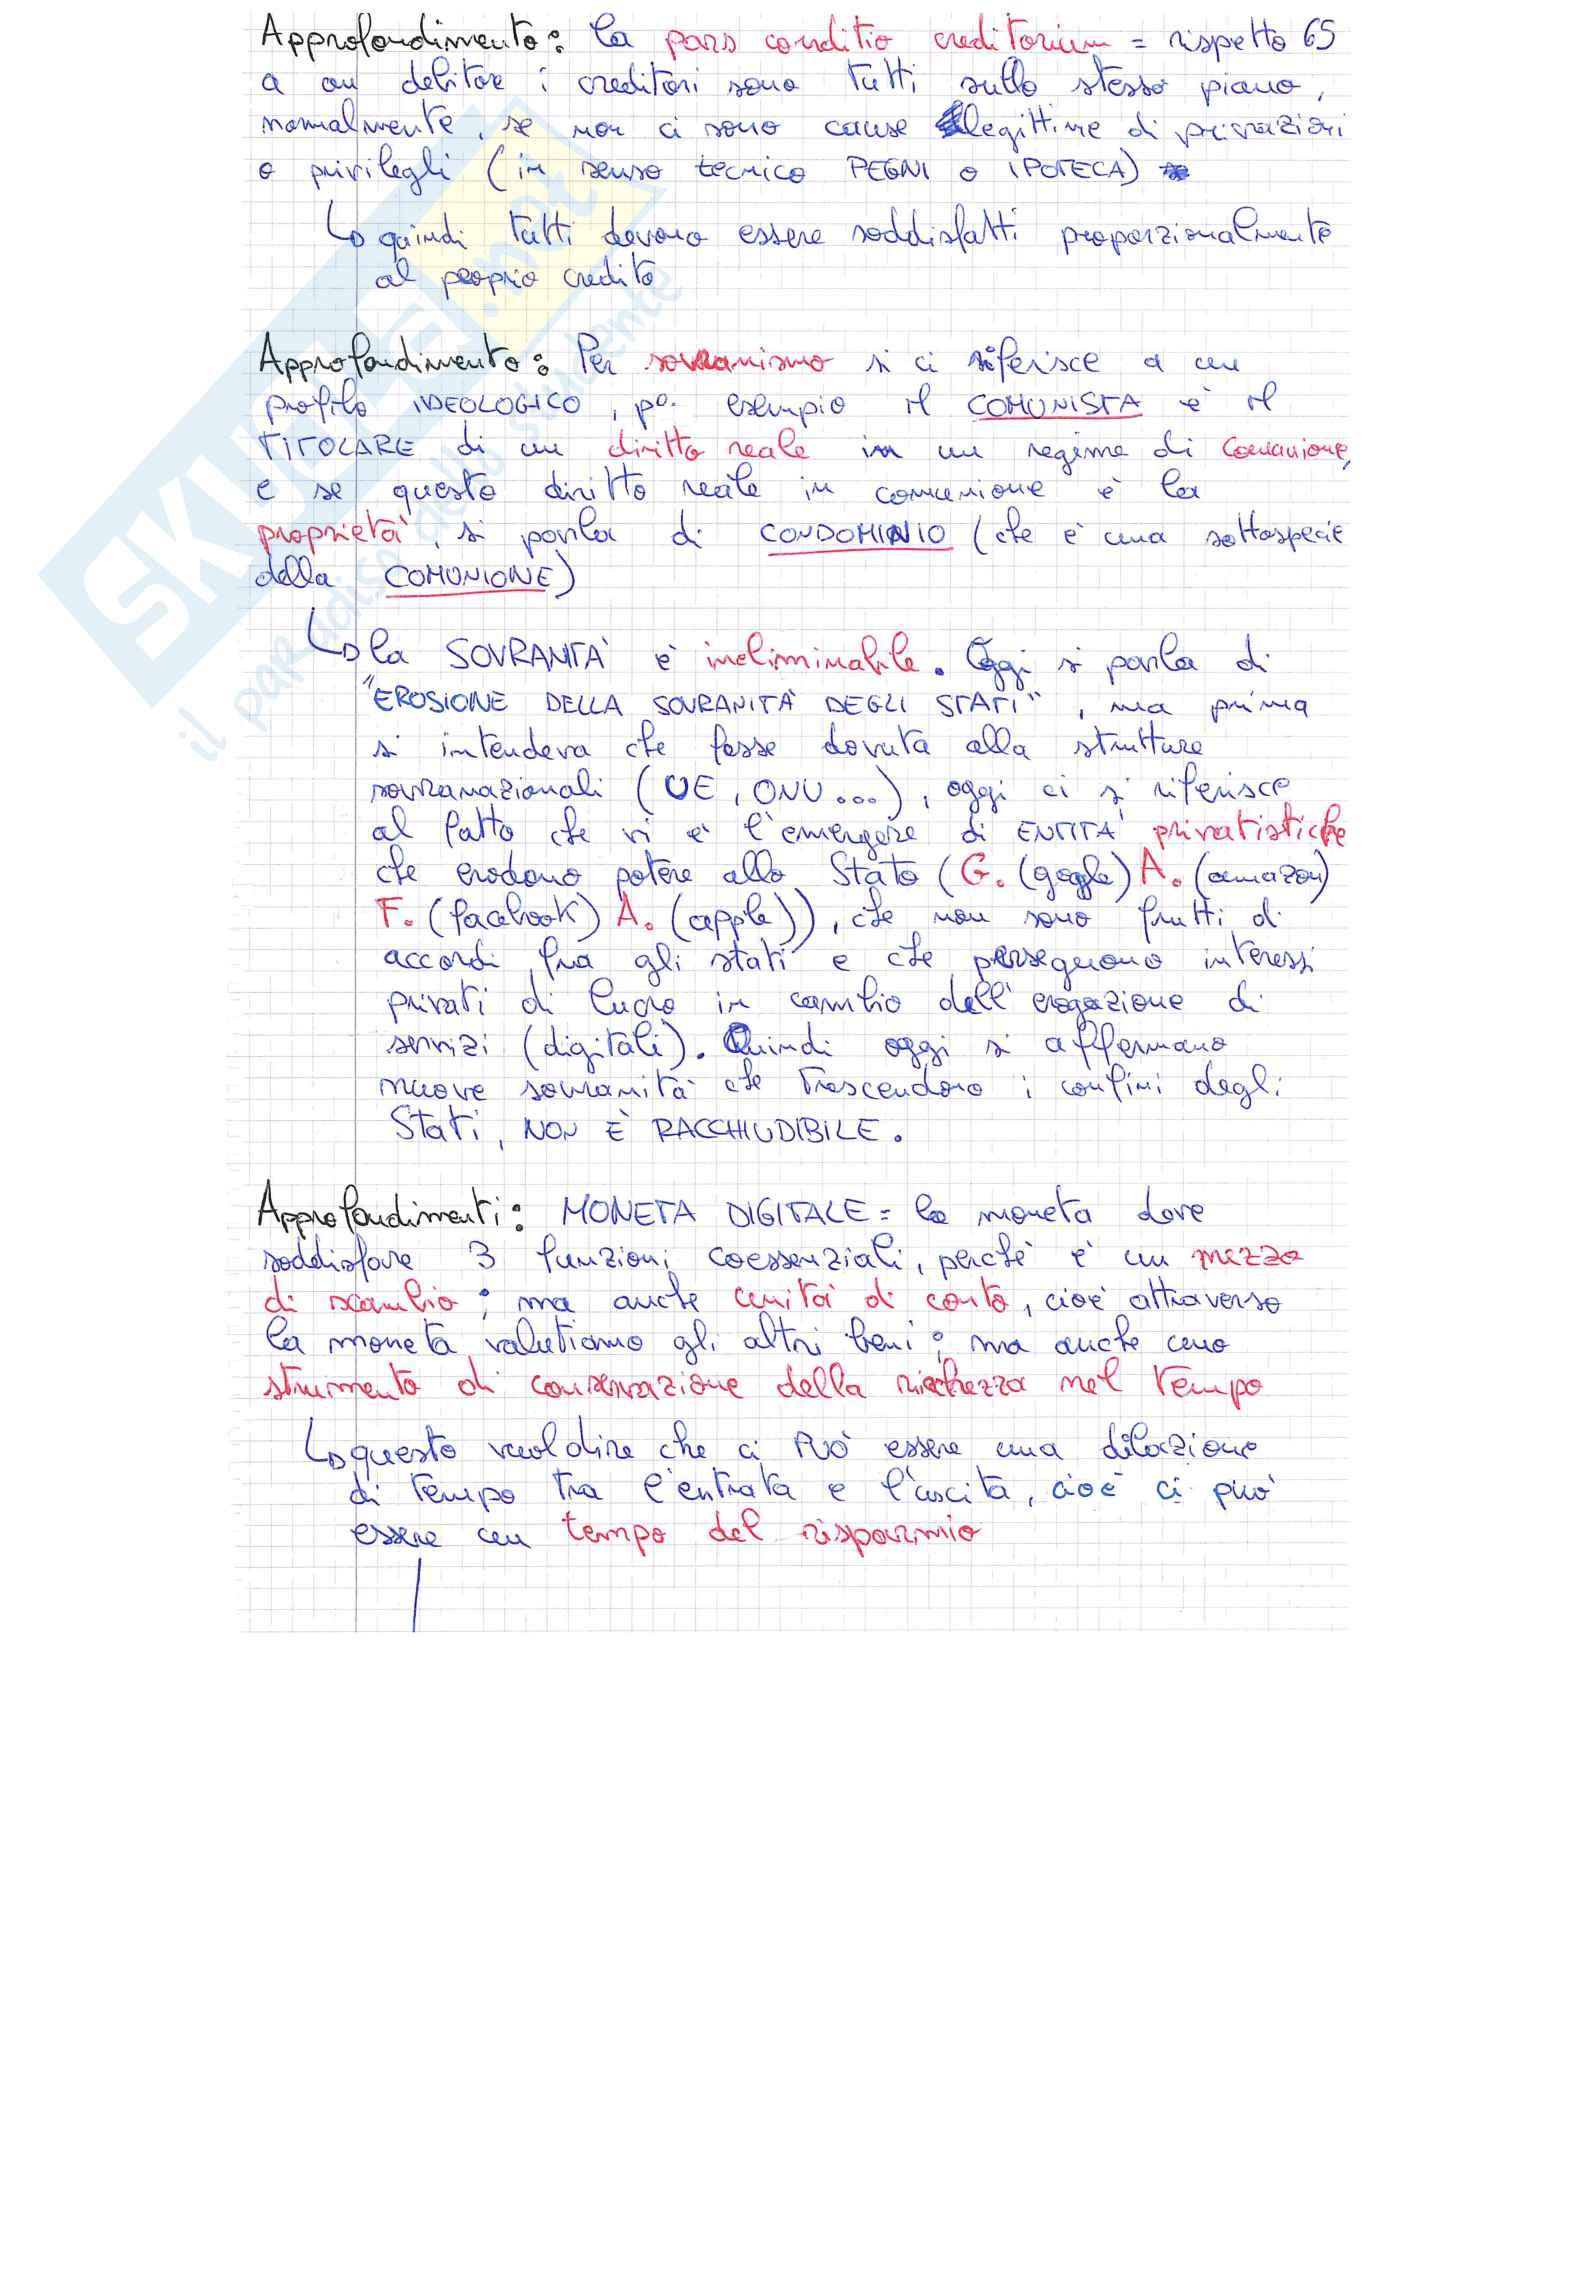 Approfondimento: la pars conditio creditorium = rispetto 65
a un debitore i creditori sono tutti sullo stesso piano,
normalmente, se non ci sono cause legittime di privazioni
o privilegli (in senso tecnico PEGNI o IPOTECA)
quindi tutti devono essere soddisfatti proporzionalmente
al proprio credito
Approfondimento: Per sovranismo si ci riferisce a un
profilo IDEOLOGICO, po. esempio il COMUNISTA è il
TITOLARE di un diritto reale in un regime di comunione,
e se questo diritto reale in comunione è la
proprietà, si parla di CONDOMINIO (che è una sottospecie
della COMUNIONE)
la SOVRANITÀ è ineliminabile. Oggi si parla di
"EROSIONE DELLA SOVRANITÀ DEGLI STATI", ma prima
si intendeva che fosse dovuta alla strutture
sovranazionali (UE, ONU...), oggi ci si riferisce
al fatto che vi è l'emergere di ENTITÀ privatistiche
che erodono potere allo Stato (G. (google) A. (amazon)
F. (facebook) A. (apple)), che non sono frutti di
accordi fra gli stati e che perseguono interessi
privati di lucro in cambio dell'erogazione di
servizi (digitali). Quindi oggi si affermano
nuove sovranità che trascendono i confini degli
Stati, NON È RACCHIUDIBILE.
Approfondimenti: MONETA DIGITALE = la moneta deve
soddisfare 3 funzioni coessenziali, perché è un mezzo
di scambio; ma anche unità di conto, cioè attraverso
la moneta valutiamo gli altri beni; ma anche uno
strumento di conservazione della ricchezza nel tempo
questo vuol dire che ci PUÒ essere una dilazione
di tempo tra l'entrata e l'uscita, cioè ci può
essere un tempo del risparmio
SKUOLA.net
il paradiso dello studente